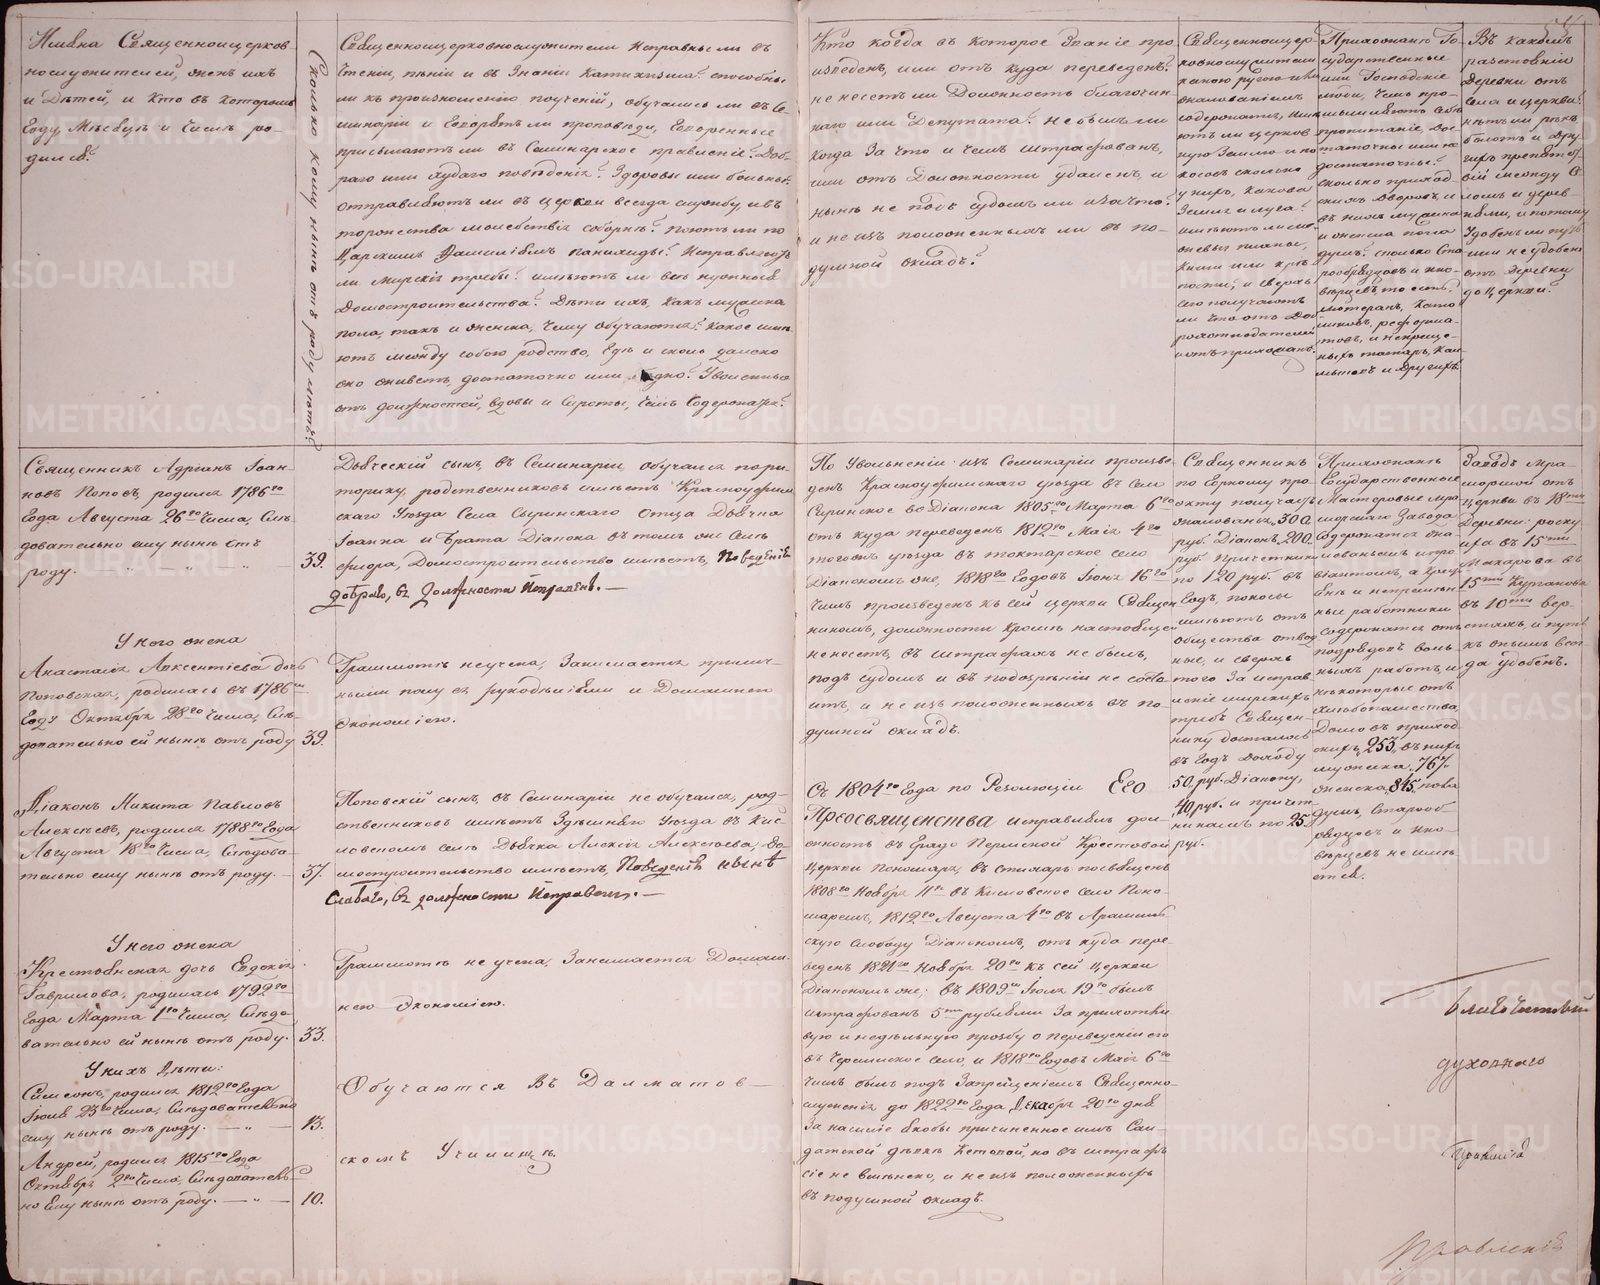 Имена Священноцерков-
нослужителей, женъ ихъ
и Дѣтей, и Кто въ которомъ
Году, Мѣсяцѣ и Числѣ ро-
дился?
Сколько кому нынѣ отъ роду лѣтъ?
Священноцерковнослужители Исправны ли въ
Чтеніи, пѣніи и въ Знаніи Катихизма? способны
ли къ произношенію поученій, обучались ли въ Се-
минаріи и Говорятъ ли проповѣди, Говоренные
присылаютъ ли въ Семинарское правленіе? Доб-
раго или худаго поведенія? Здоровы или больны?
отправляютъ ли въ церкви всегда службу, и въ
торжества молебствія соборнѣ? поютъ ли по
Царскимъ Фамиліямъ панихиды? Исправляютъ
ли Мирскія требы? имѣютъ ли всѣ
Домостроительства? Дѣти ихъ, какъ мужска
пола, такъ и женска, Чему обучаются? какое имѣ-
ютъ между собою родство, Гдѣ и сколь далеко
кто живетъ достаточно или бѣдно? Уволенные
отъ должностей, вдовы и Сироты, Чемъ Содержатся?
Кто когда въ которое Званіе про-
изведенъ, или отъ куда переведенъ?
не несетъ ли Должность благочин-
наго или Депутата? Не былъ ли
когда За что и Чемъ штрафованъ,
или отъ Должности удаленъ, и
нынѣ не подъ судомъ ли и За что?
и не изъ положенныхъ ли въ по-
душной окладѣ?
Священноцер-
ковнослужители
какою ругою или
жалованьемъ
содержатся, имѣ-
ютъ ли церков-
ную Землю и по-
косовъ сколько
у нихъ, какова
Земля и луга?
имѣютъ ли ме-
жевыя планы,
книги или крѣ-
пости, и сверхъ
сего получаютъ
ли что отъ Доб-
рохотнодателей
и отъ прихожанъ.
Прихожанъ Го-
сударственные
или Господскіе
люди, Чемъ про-
мышляютъ себѣ
пропитаніе, Дос-
таточны или не-
достаточны?
сколько приход-
скихъ Дворовъ, и
въ нихъ мужска
и женска пола
душъ? сколько Ста-
рообрядцовъ и ино-
вѣрцовъ, то есть:
лютеранъ, Като-
ликовъ, реформа-
товъ, и некреще-
ныхъ татаръ, Кал-
мыковъ и другихъ.
Въ какомъ
разстояніи
Деревни отъ
Села и церкви?
нѣтъ ли рѣкъ
болотъ и Дру-
гихъ препятс-
вій между Се-
ломъ и дерев-
нями, и потому
Удобенъ ли путь
или не удобенъ
отъ Деревни
до Церкви?
Священникъ Адріанъ Іоан-
новъ Поповъ, родился 1786го
Года Августа 26го Числа, Слѣ-
довательно ему нынѣ отъ
роду. 39.
Дьяческій сынъ, въ Семинаріи обучался по ри-
торику, родственниковъ имѣетъ Красноуфим-
скаго Уѣзда Села Сыринскаго Отца Дьячка
Іоанна и Брата Діакона въ томъ же Селѣ
Домостроительство имѣетъ, Поведенія
добраго, въ должности Исправенъ.—
По Увольненіи изъ Семинаріи произве-
денъ Красноуфимскаго уѣзда въ село
Сыринское во Діакона 1805го Марта 6го
отъ куда переведенъ 1812го Маія 4го
тогожъ уѣзда въ токтарское село
Діакономъ же, 1818го Годовъ Іюня 16го
Числа произведенъ къ сей церкви Священ-
никомъ, должности кромѣ настоящей
не несетъ, въ штрафахъ не былъ,
подъ судомъ и въ подозрѣніи не состо-
итъ, и не изъ положенныхъ въ по-
душной окладъ.
Священникъ
по Горному про-
экту получаетъ
жалованья 300
руб. Діаконъ 200
руб. Причетники
по 120 руб. въ
Годъ, покосы
имѣютъ отъ
общества отвод-
ные, и сверхъ
того За исправ-
леніе мирскихъ
требъ Священ-
нику досталось
въ Годъ доходу
50. руб. Діакону,
40 руб. и причет-
никамъ по 25
руб.
Прихожане
Государственные
Мастеровые мра-
морскаго Завода
Содержатся жа-
лованьемъ и про-
віантомъ, а
и непремѣн-
ные работники
Содержатся отъ
подрядовъ воль-
ныхъ работъ, и
нѣкоторые отъ
хлѣбопашества,
Домовъ приход-
скихъ 253, въ нихъ
мужска 767.
женска 845, пола
душъ, Старооб-
рядцовъ и ино-
вѣрцевъ не имѣ-
ется.
Заводъ мра-
морской отъ
церкви въ 18ти
Деревни:
въ 15ти
Макарова въ
15ти Курганова
въ 10ти вер-
стахъ, и путь
къ онымъ всег-
да удобенъ.
У него жена
Анастасія Авксентіева дочь
Поповская, родилась въ 1786м
Году Октября 28го Числа, Слѣ-
довательно ей нынѣ отъ роду 39.
Грамотѣ неучена, Занимается прилич-
ными полу ея рукодѣліями и Домашнею
Экономіею.
Діаконъ Никита Павловъ
Алексѣевъ, родился 1788го Года
Августа 18го Числа, Слѣдова-
тельно ему нынѣ отъ роду.— 37.
Поповскій сынъ, въ Семинаріи не обучался, род-
ственниковъ имѣетъ Здѣшняго Уѣзда въ Кис-
ловскомъ селѣ Дьячка Алексія Алексѣева, до-
мостроительство имѣетъ, Поведенія нынѣ
слабаго, въ должности Исправенъ.—
Съ 1804го Года по Резолюціи Его
Преосвященства исправлялъ дол-
жность въ Градо Пермской Крестовой
Церкви Пономаря, въ стихарь посвященъ
1808го Ноября 11го въ Кисловское село Поно-
маремъ, 1812го Августа 4го въ Арамиль-
скую слободу Діакономъ, отъ куда пере-
веденъ 1821го Ноября 20го къ сей церкви
Діакономъ же; въ 1809м Іюля 19го былъ
штрафованъ 5ти рублями За прихотли-
вую и недѣльную прозбу о переведеніи его
въ село, и 1818го Годовъ Маія 6го
Числа былъ подъ Запрещеніемъ Священно-
служенія до 1822го Года Декабря 20го дня
За насиліе якобы причиненное имъ Сол-
датской дѣвкѣ Кетовой, но въ штрафъ
сіе не вмѣнено, и не изъ положенныхъ
въ подушной окладъ.
У него жена
Крестьянская дочь Евдокія
Гаврилова, родилась 1792го
Года Марта 1го Числа, Слѣдо-
вательно ей нынѣ отъ роду. 33.
Грамотѣ не учена, Занимается Домаш-
нею Экономіею.
У нихъ Дѣти:
Симеонъ, родился 1812го Года
Іюля 23го Числа, Слѣдовательно
ему нынѣ отъ роду.— 13.
Андрей, родился 1815го Года
Октября 2го Числа, Слѣдователь-
но Ему нынѣ отъ роду.— 10.
Обучаются въ Далматов-
скомъ Училищѣ.
духовнаго
Правленія
METRIKI.GASO-URAL.RU